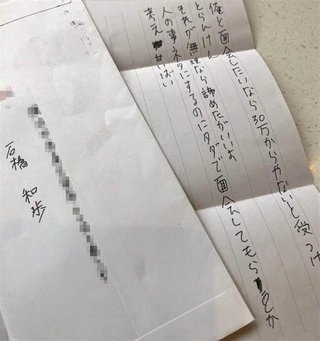 俺と面会したいなら30万からやないと受つけ
とらんけん
それが無理なら諦めたがいいよ
人の事ネタにするのにタダで面会してもらおうとか
考え甘いばい
石橋 和歩